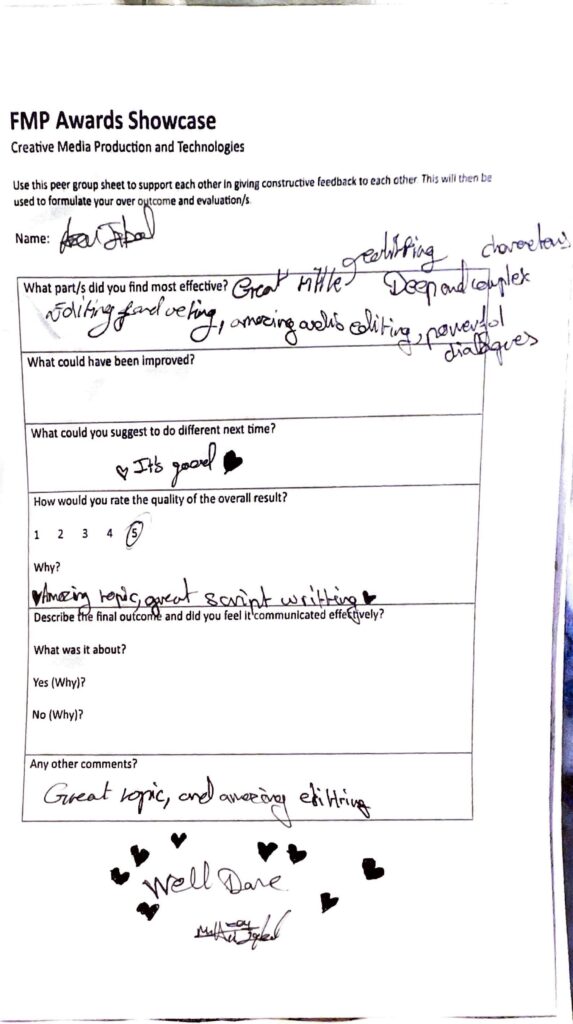 FMP Awards Showcase
Creative Media Production and Technologies
Use this peer group sheet to support each other in giving constructive feedback to each other. This will then be
used to formulate your over outcome and evaluation/s.
Name: Iqbal
What part/s did you find most effective? Great title characters
Deep and complex
Editing and acting, amazing audio editing, powerful
dialogues
What could have been improved?
What could you suggest to do different next time?
It's good
How would you rate the quality of the overall result?
1 2 3 4 5
Why?
Amazing topic, great script writting
Describe the final outcome and did you feel it communicated effectively?
What was it about?
Yes (Why)?
No (Why)?
Any other comments?
Great topic, and amazing editting
Well Done
Iqbal